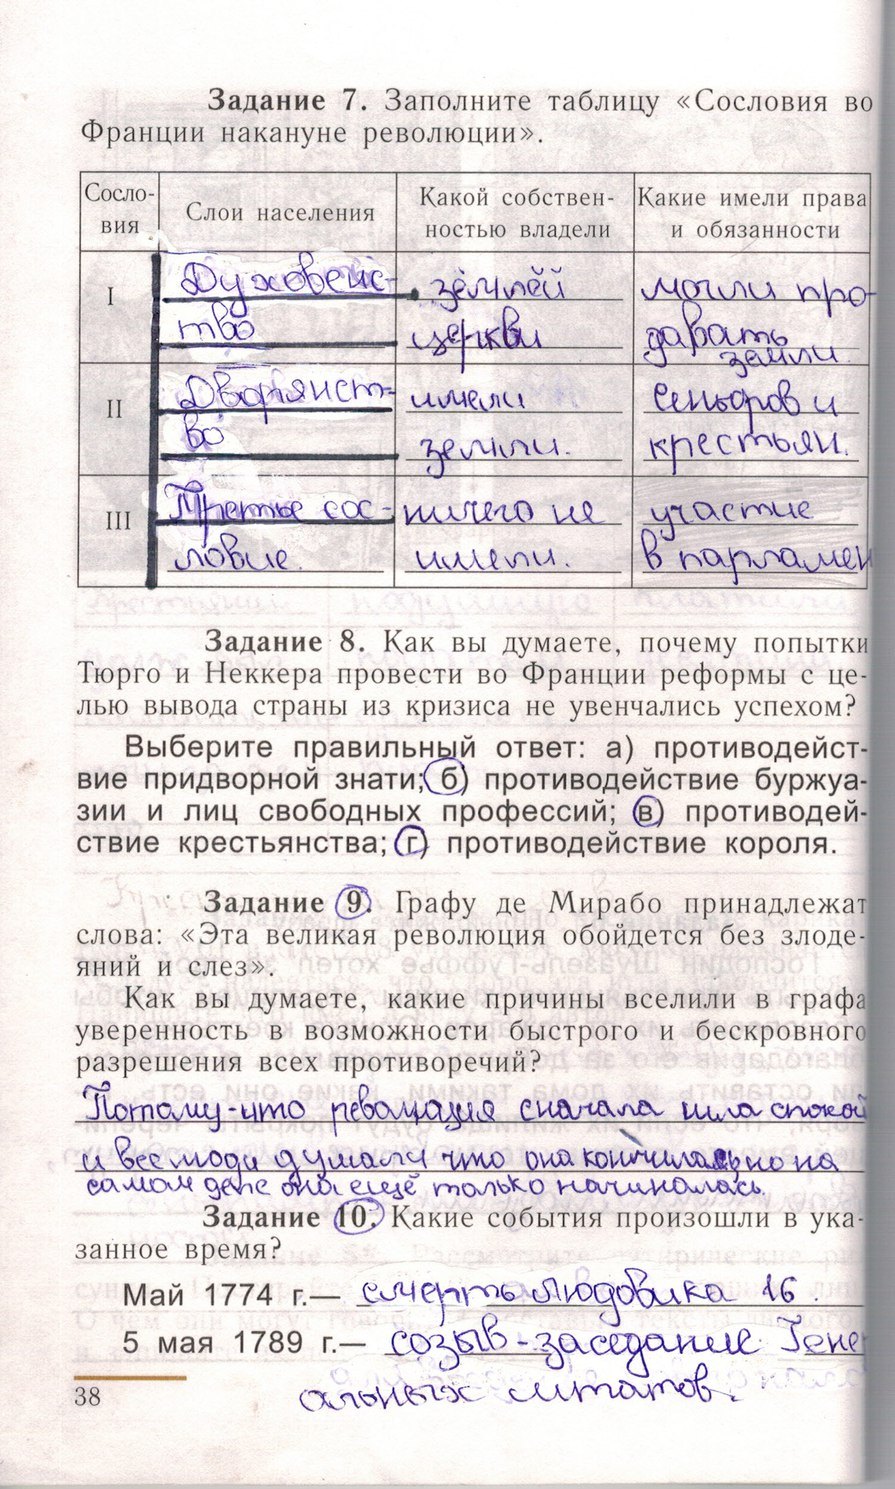 Задание 7. Заполните таблицу «Сословия во
Франции накануне революции».
Сосло-
вия
Слои населения
Какой собствен-
ностью владели
Какие имели права
и обязанности
I
Духовенс-
тво
землёй
церкви
могли про-
давать
земли.
II
Дворянст-
во
имели
земли.
сеньоров и
крестьян.
III
Третье сос-
ловие.
ничего не
имели.
участие
в парламен
Задание 8. Как вы думаете, почему попытки
Тюрго и Неккера провести во Франции реформы с це-
лью вывода страны из кризиса не увенчались успехом?
Выберите правильный ответ: а) противодейст-
вие придворной знати; б) противодействие буржуа-
зии и лиц свободных профессий; в) противодей-
ствие крестьянства; г) противодействие короля.
Задание 9. Графу де Мирабо принадлежат
слова: «Эта великая революция обойдется без злоде-
яний и слез».
Как вы думаете, какие причины вселили в графа
уверенность в возможности быстрого и бескровного
разрешения всех противоречий?
Потому-что революция сначала шла спокой
и все люди думали что она кончилась, но на
самом деле она ещё только начиналась.
Задание 10. Какие события произошли в ука-
занное время?
Май 1774 г.— смерть Людовика 16.
5 мая 1789 г.— созыв-заседание Гене
ральных штатов.
38